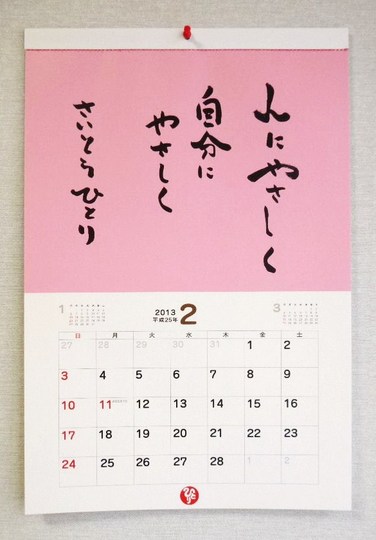 人にやさしく
自分に
やさしく
さいとうひとり
1
2013
平成25年
2
3
日 月 火 水 木 金 土
27 28 29 30 31 1 2
3 4 5 6 7 8 9
10 11 12 13 14 15 16
17 18 19 20 21 22 23
24 25 26 27 28 1 2